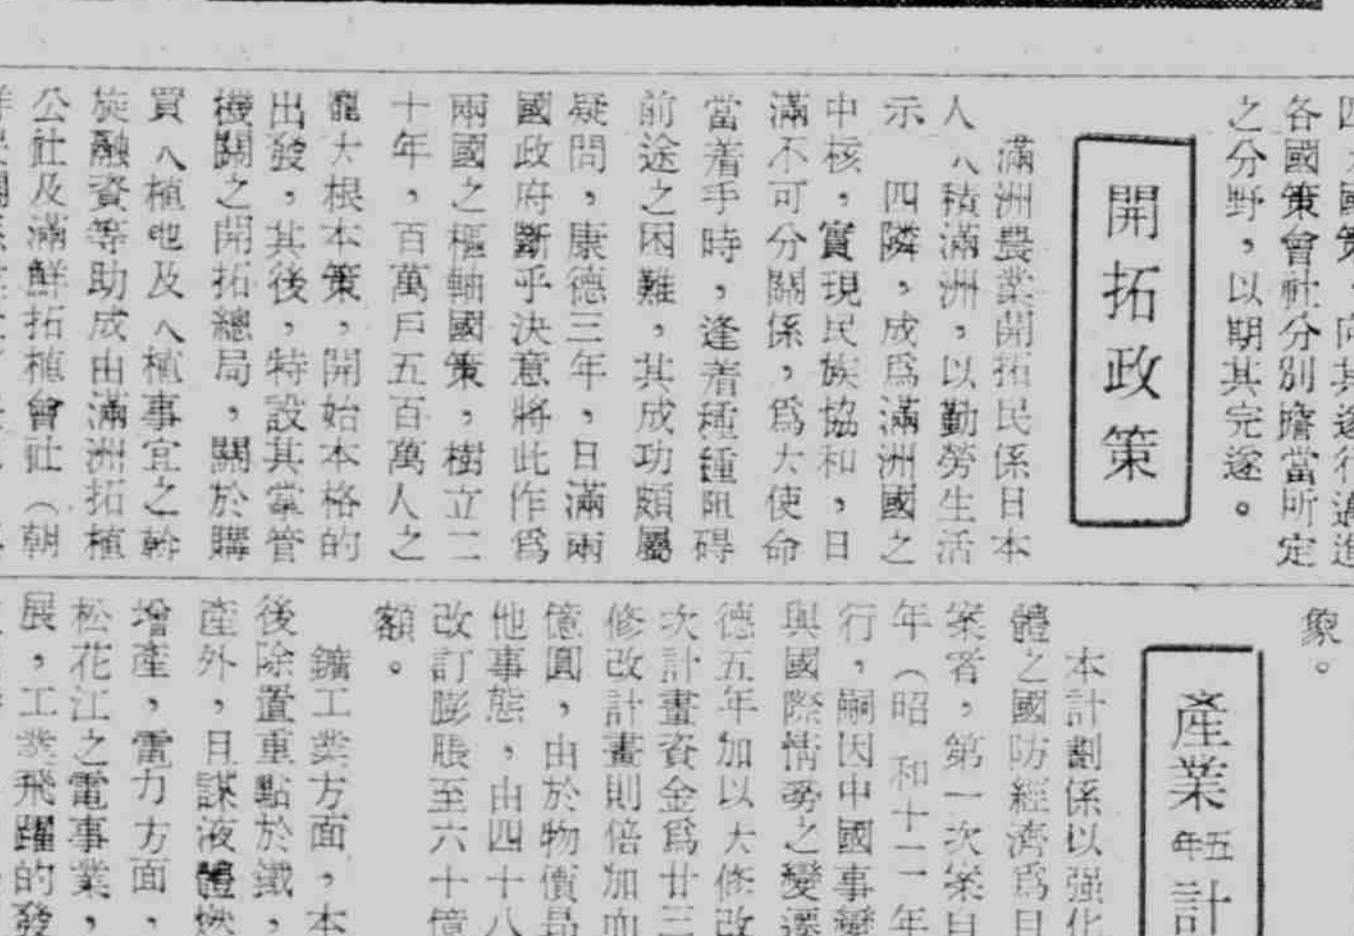 各國策會社分別擔當所定
之分野，以期其完遂。
開拓政策
滿洲農業開拓民係日本
人入積滿洲，以勤勞生活
示　四隣，成爲滿洲國之
中核，實現民族協和，日
滿不可分關係，爲大使命
當着手時，逢着種種阻碍
前途之困難，其成功頗屬
疑問，康德三年，日滿兩
國政府斷乎決意將此作爲
兩國之樞軸國策，樹立二
十年，百萬戶五百萬人之
龐大根本策，開始本格的
出發，其後，特設其掌管
機關之開拓總局，關於購
買入植地及入植事宜之斡
旋融資等助成由滿洲拓植
公社及滿鮮拓植會社（朝
象。
產業五年計
本計劃係以强化
體之國防經濟爲目
案者，第一次案自
年（昭和十二年
行，嗣因中國事變
與國際情勢之變遷
德五年加以大修改
次計畫資金爲廿三
修改計畫則倍加
億圓，由於物價昂
他事態，由四十八
改訂膨脹至六十億
額。
鑛工業方面，本
後除置重點於鐵，
產外，且謀液體燃
增產，電力方面，
松花江之電事業，
展，工業飛躍的發